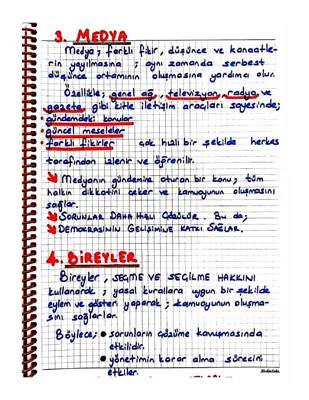 3. MEDYA
Medya; farklı fikir, düşünce ve kanaatle-
rin yayılmasına ; aynı zamanda serbest
düşünce ortamının oluşmasına yardımcı olur.
Özellikle; genel ağ, televizyon, radyo ve
gazete gibi kitle iletişim araçları sayesinde;
• gündemdeki konular
• güncel meseleler
• farklı fikirler çok hızlı bir şekilde herkes
tarafından izlenir ve öğrenilir.
Medyanın gündemine oturan bir konu; tüm
halkın dikkatini çeker ve kamuoyunun oluşmasını
sağlar.
SORUNLAR DAHA HIZLI ÇÖZÜLÜR. Bu da;
DEMOKRASİNİN GELİŞİMİNE KATKI SAĞLAR.
4. BİREYLER
Bireyler, SEÇME VE SEÇİLME HAKKINI
kullanarak ; yasal kurallara uygun bir şekilde
eylem ve gösteri yaparak ; kamuoyunun oluşma-
sını sağlarlar.
Böylece; • sorunların çözüme kavuşmasında
etkilidir.
• yönetimin karar alma sürecini
etkiler.